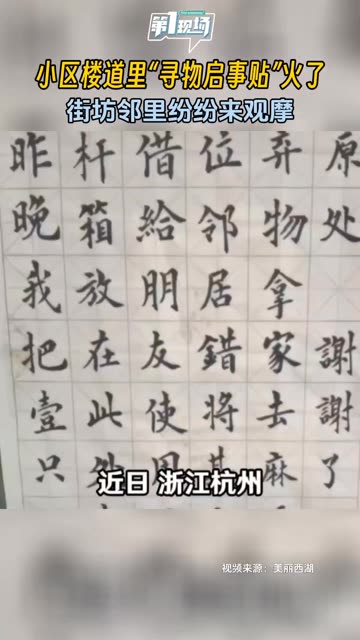 第1现场
小区楼道里“寻物启事贴”火了
街坊邻里纷纷来观摩
昨晚我把壹只
杆箱放在此
借給朋友使用
位邻居錯將其
弃物拿家去麻
原处謝謝了
近日 浙江杭州
视频来源：美丽西湖